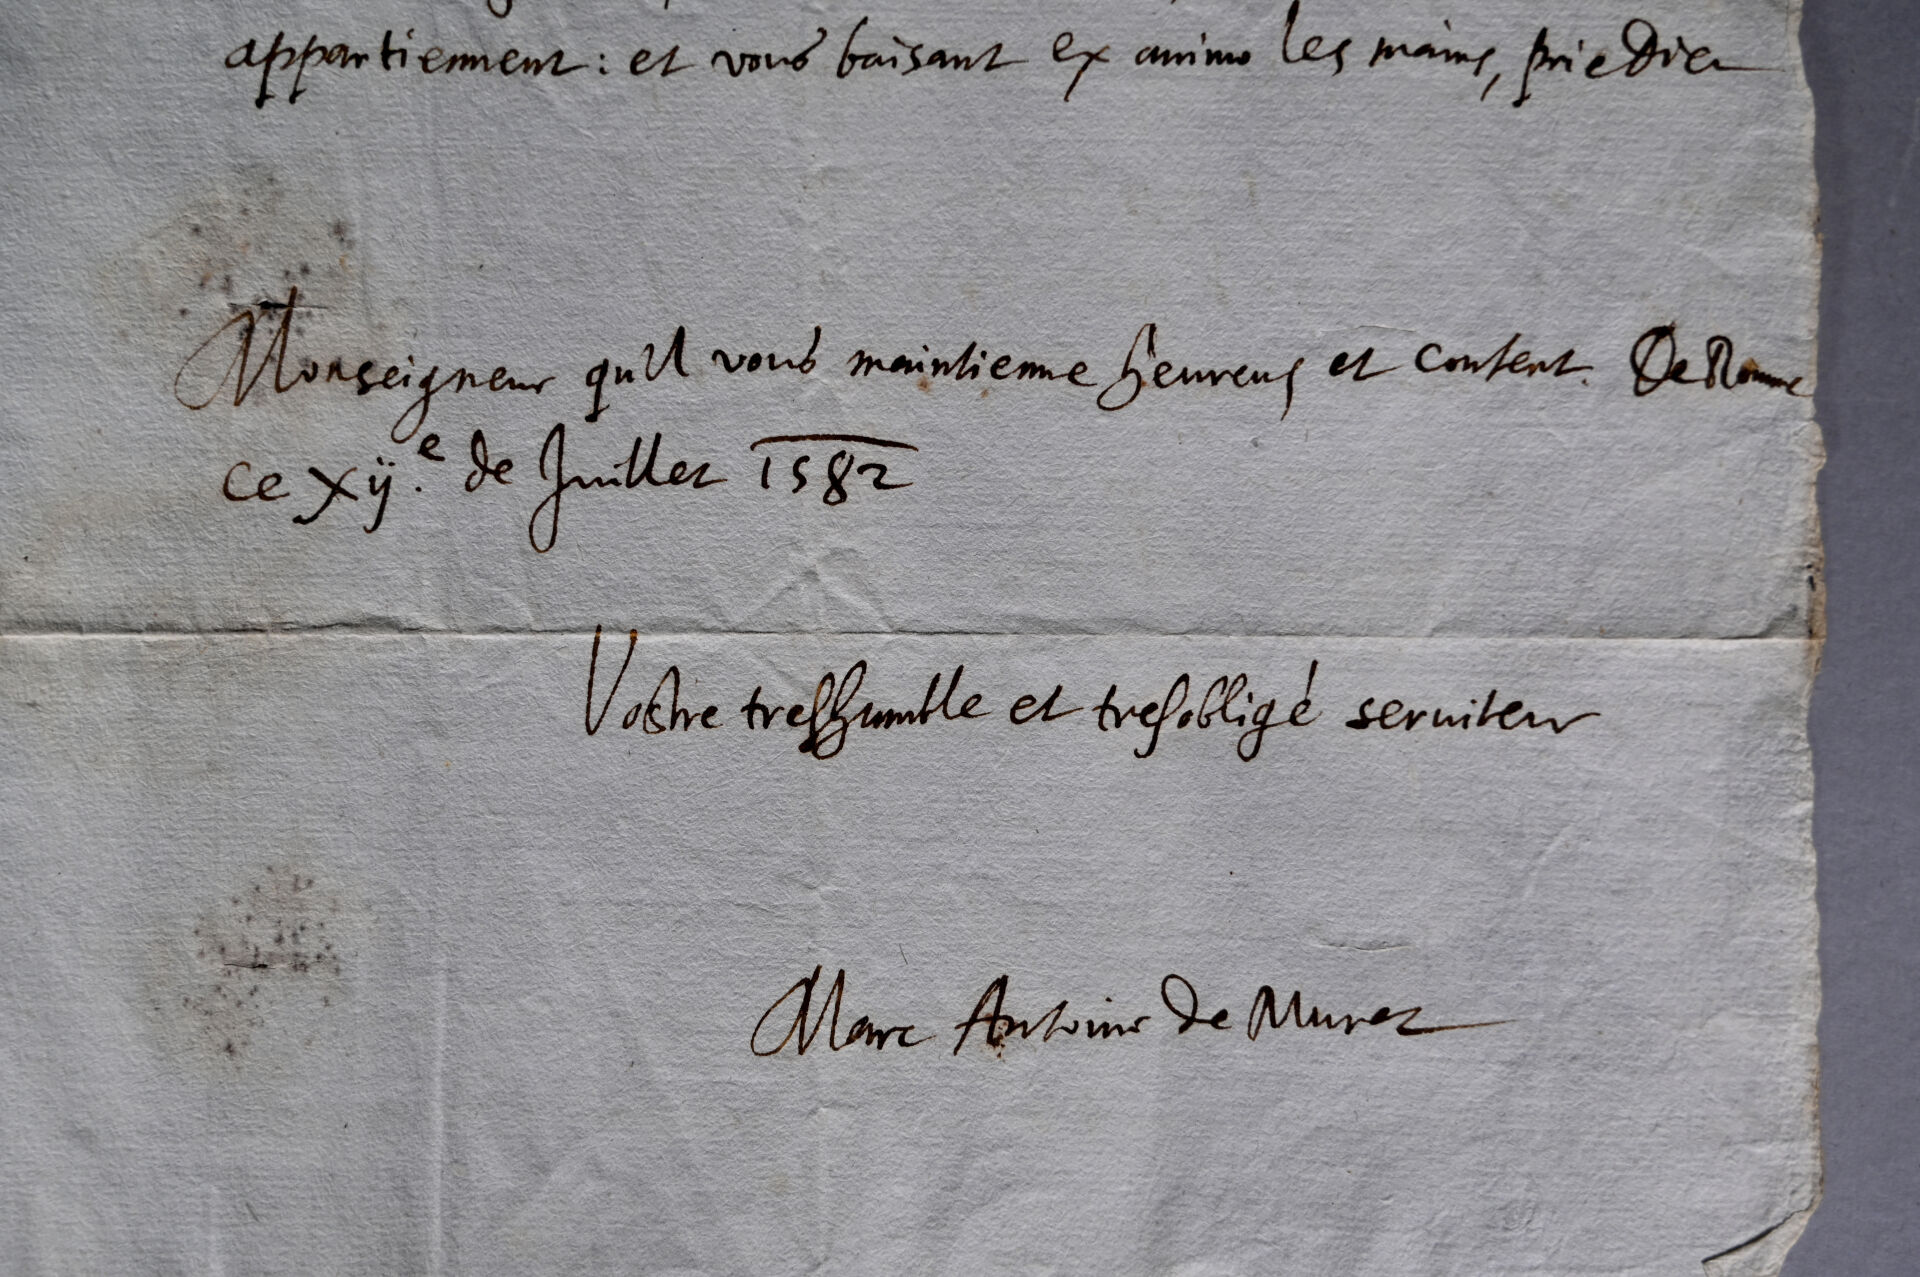 appartiennent : et vous baisant ex animo les mains, prie Dieu
Monseigneur qu'Il vous maintienne heureus et content. De Romme
ce xij.e de Juillet 1582
Vostre treshumble et tresobligé seruiteur
Marc Antoine de Muret